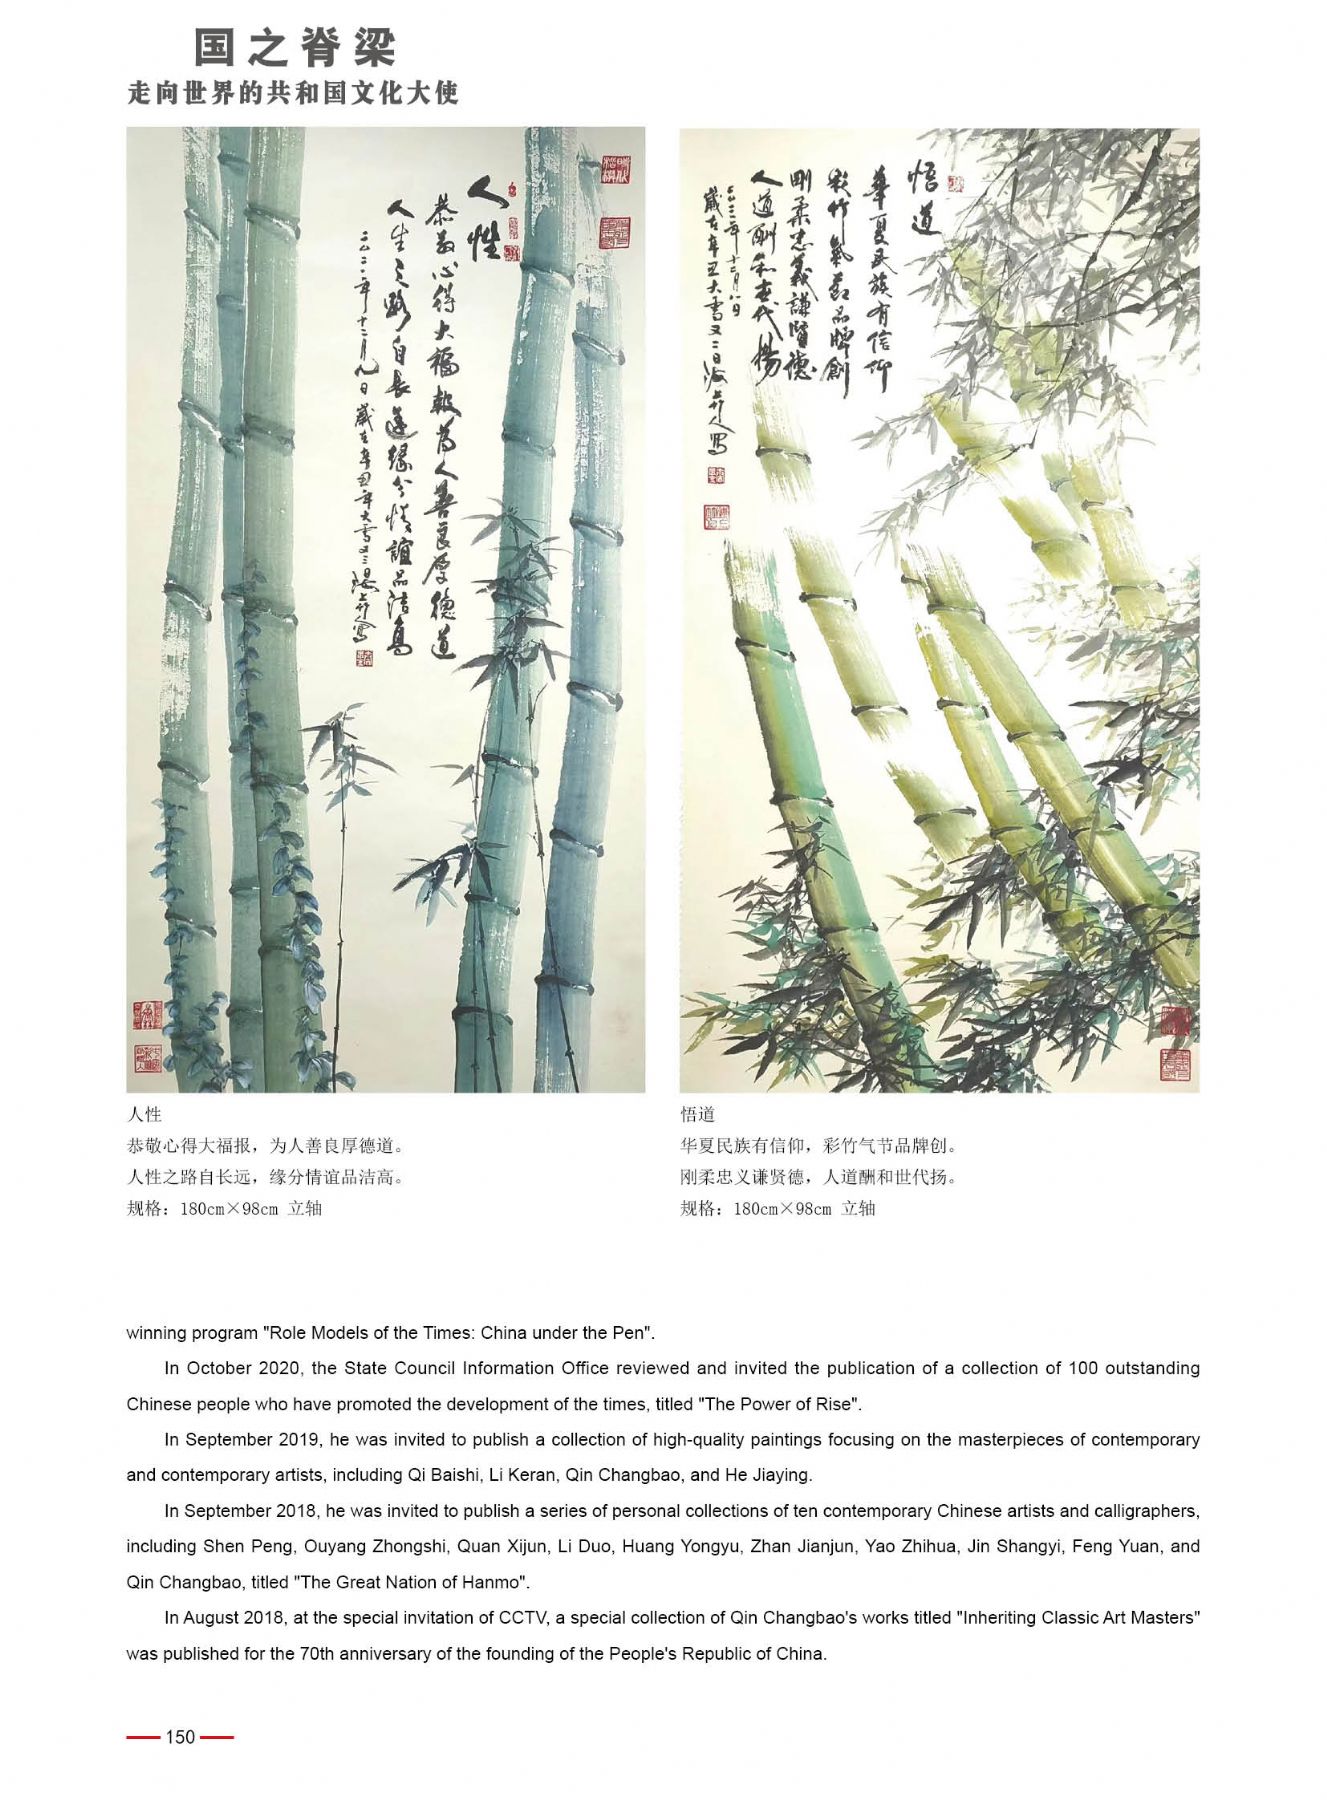 国之脊梁
走向世界的共和国文化大使
人性
恭敬心得大福报为人善良厚德道
人生之路自长远缘分情谊品洁高
二〇二一年十二月九日岁在辛丑年大雪又三
悟道
华夏民族有信仰
彩竹气节品牌创
刚柔忠义谦贤德
人道酬和世代扬
岁在辛丑大雪又二日
人性
恭敬心得大福报，为人善良厚德道。
人性之路自长远，缘分情谊品洁高。
规格：180cm×98cm 立轴
悟道
华夏民族有信仰，彩竹气节品牌创。
刚柔忠义谦贤德，人道酬和世代扬。
规格：180cm×98cm 立轴
winning program "Role Models of the Times: China under the Pen".
In October 2020, the State Council Information Office reviewed and invited the publication of a collection of 100 outstanding
Chinese people who have promoted the development of the times, titled "The Power of Rise".
In September 2019, he was invited to publish a collection of high-quality paintings focusing on the masterpieces of contemporary
and contemporary artists, including Qi Baishi, Li Keran, Qin Changbao, and He Jiaying.
In September 2018, he was invited to publish a series of personal collections of ten contemporary Chinese artists and calligraphers,
including Shen Peng, Ouyang Zhongshi, Quan Xijun, Li Duo, Huang Yongyu, Zhan Jianjun, Yao Zhihua, Jin Shangyi, Feng Yuan, and
Qin Changbao, titled "The Great Nation of Hanmo".
In August 2018, at the special invitation of CCTV, a special collection of Qin Changbao's works titled "Inheriting Classic Art Masters"
was published for the 70th anniversary of the founding of the People's Republic of China.
150